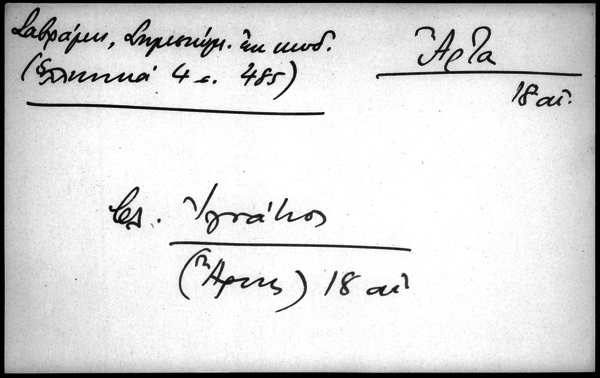 Σαβράμη, Σημειώμ. ἐκ κωδ.
(Ἑλληνικά 4 σ. 485)
Ἄρτα
18 αἰ.
βλ. Ἰγνάτιος
(Ἄρτης) 18 αἰ